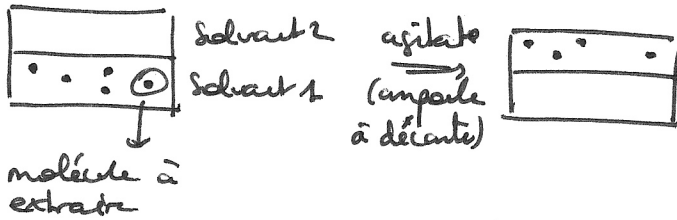 Solvant 2
Solvant 1
molécule à
extraire
agitat°
(ampoule
à décanter)